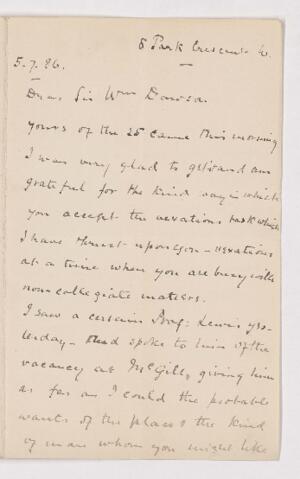 8 Park Crescent W.
5.7.96.
Dear Sir Wm Dawson.
Yours of the 25 came this morning
I was very glad to get and am
grateful for the kind way in which
you accept the vexatious task which
I have thrust upon you – vexatious
at a time when you are busy with
non-collegiate matters.
I saw a certain Prof: Lewis yes-
terday – and spoke to him of the
vacancy at McGill, giving him
as far as I could the probable
wants of the place & the kind
of man whom you might like